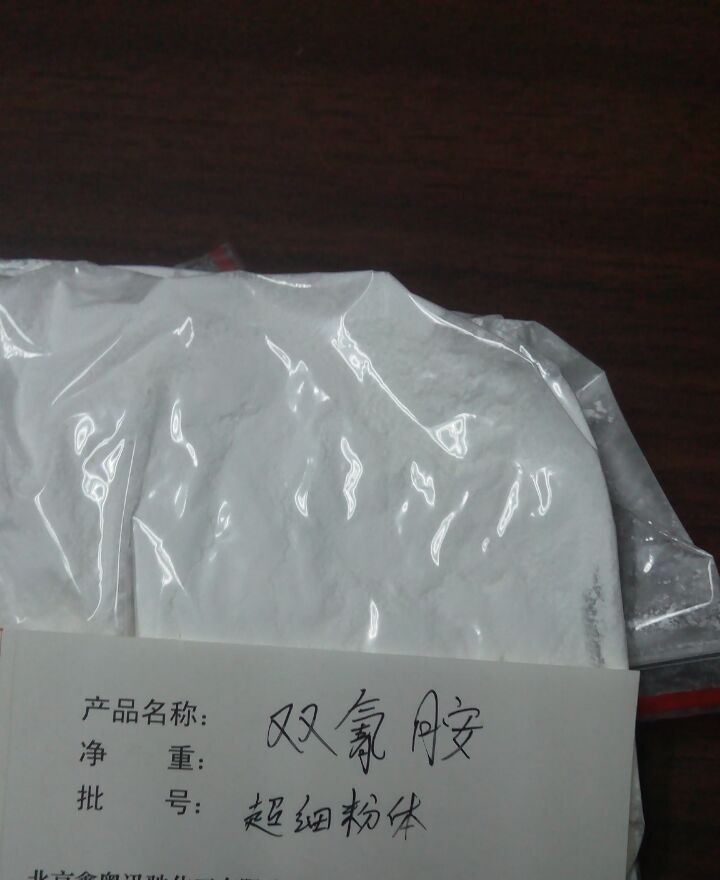 产品名称：双氰胺
净 重：
批 号：超细粉体